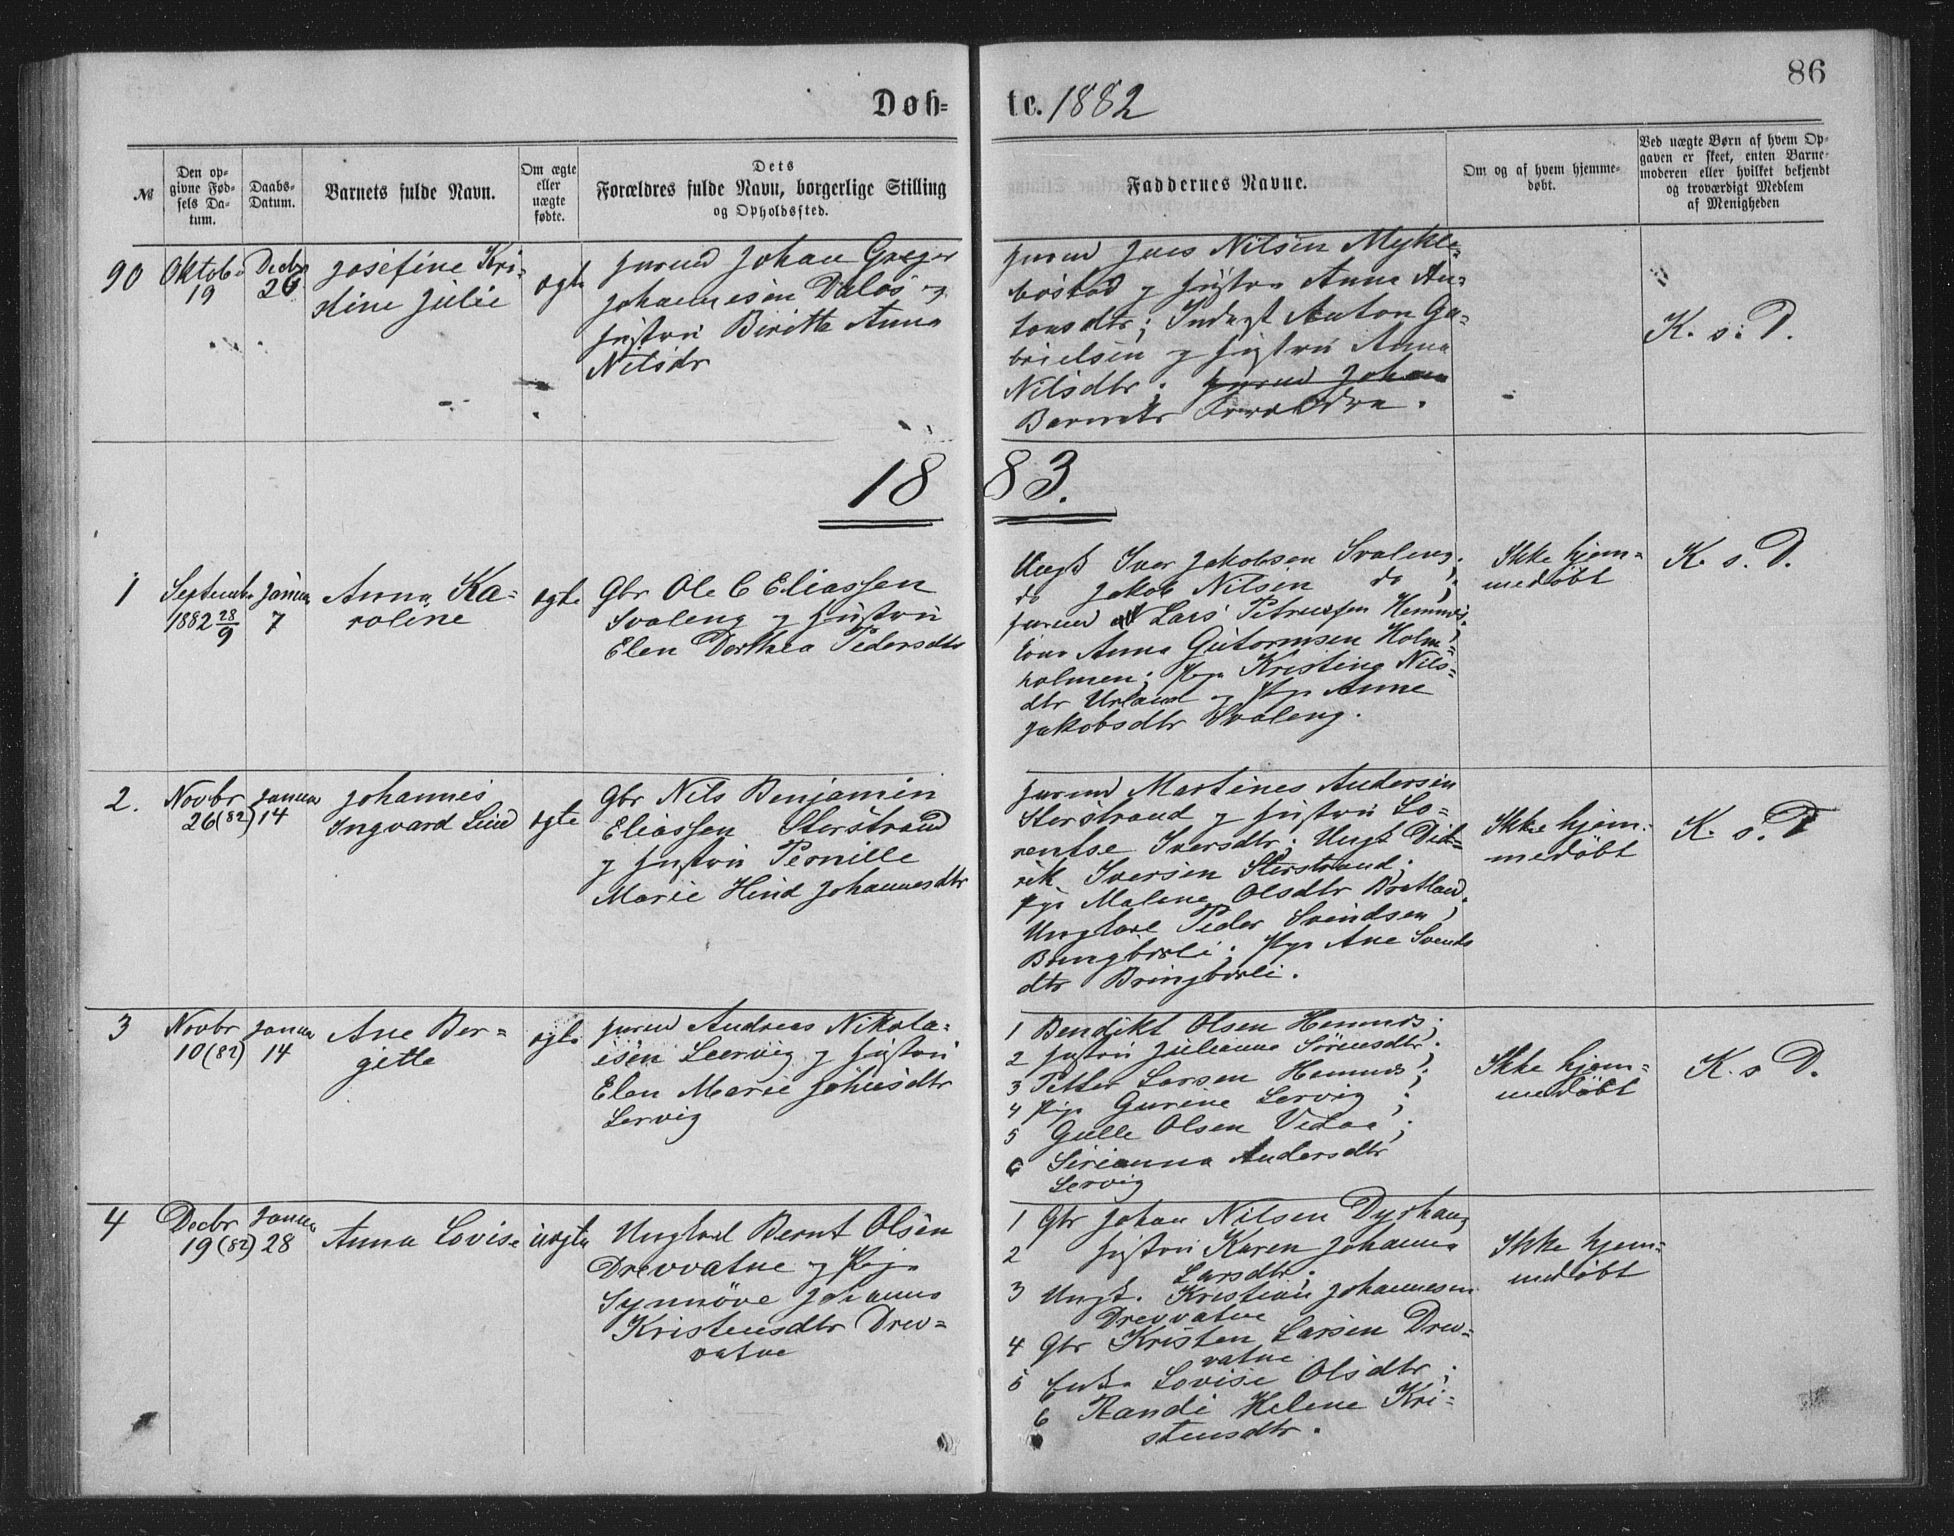 86
Døb= te. 1882
№
Den op=
givne Fød=
sels Da=
tum.
Daabs=
Datum.
Barnets fulde Navn.
Om ægte
eller
uægte
fødte.
Dets
Forældres fulde Navn, borgerlige Stilling
og Opholdssted.
Faddernes Navne.
Om og af hvem hjemme=
døbt.
Ved uægte Børn af hvem Op=
gaven er skeet, enten Barne=
moderen eller hvilket bekjendt
og troværdigt Medlem
af Menigheden
90
Oktobr
19
Decbr
26
Josefine Kri=
stine Julie
ægte
Johan Greger
Johannesen Dalos og
Hustru Biritte Anna
Nilsdr
Jens Nilsen Mykle=
bostad og Hustru Anna An=
tonsdtr; Inderst Anton Ga=
brielsen og Hustru Anna
Nilsdtr; Johan
Barnets Forældre.
K. s. D.
1883.
1
Septembr
1882 28/9
Januar
7
Anna Ka=
roline
ægte
Gbr Ole C Eliassen
Svaleng og Hustru
Elen Dorthea Pedersdtr
Ungk Iver Jakobsen Svaleng;
do Jakob Nilsen do;
Lars Petersen Hemnes;
Kone Anna Gutormsen Holm=
holmen; Pige Kristine Nils=
dtr Urland og Pige Anne
Jakobsdtr Svaleng.
Ikke hjem=
medøbt
K. s. D.
2.
Novbr
26 (82)
Januar
14
Johannes
Ingvard Lind
ægte
Gbr Nils Benjamin
Eliassen Sterstrand
og Hustru Pernille
Marie Hind Johannesdtr
Martines Andersen
Sterstrand og Hustru Lo=
rentse Iversdtr; Ungk Did=
rik Iversen Sterstrand;
Pige Malene Olsdtr Bratland;
Ungkarl Peder Svendsen
Bringbsli; Pige Ane Svends
dtr Bringbsli.
Ikke hjem=
medøbt
K. s. D
3
Novbr
10 (82)
Januar
14
Ane Ber=
gitte
ægte
Andreas Nikola=
isen Leervig og Hustru
Elen Marie Johnsdtr
Lervig
1 Bendikt Olsen Hemnes;
2 Hustru Julianna Sørensdtr.
3 Petter Larsen Hemnes;
4 Pige Gurine Lervig;
5 Gulle Olsen Vedaa;
6 Sirianna Andersdtr
Lervig
Ikke hjem=
medøbt
K. s. D.
4
Decbr
19 (82)
Januar
28
Anna Lovise
uægte
Ungkarl Bernt Olsen
Drevvatne og Pige
Synnöve Johanna
Kristensdtr Drev=
vatne
1 Gbr Johan Nilsen Dyrhaug
2 Hustru Karen Johanna
Larsdtr;
3 Ungk. Kristian Johannesen
Drevvatne
4 Gbr Kristen Larsen Drev=
vatne
5 Enke Lovise Olsdtr;
6 Randi Helene Kri=
stensdtr.
Ikke hjem=
medøbt